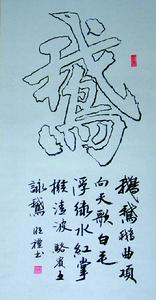 鵞
鵝鵝鵝曲項
向天歌白毛
浮綠水紅掌
撥清波 駱賓王
詠鵝 書